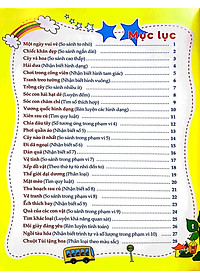 Mục lục
Một ngày vui vẻ (So sánh to nhỏ) 1
Chiếc khăn đẹp (So sánh ngắn dài) 2
Cây và hoa (So sánh cao thấp) 3
Hái dưa (Nhận biết hình dạng) 4
Chơi trong công viên (Nhận biết hình tam giác) 5
Tranh treo tường (Nhận biết hình vuông) 6
Trồng cây (So sánh nhiều ít) 7
Sóc con hái hạt dẻ (Luyện đếm) 8
Sóc con chăm chỉ (Tìm số thích hợp) 9
Vương quốc hình dạng (Rèn luyện các hình dạng) 10
Xiên rau củ (Tìm quy luật) 11
Chia dâu tây (Số tương ứng trong phạm vi 4) 12
Phơi quần áo (Nhận biết số 5) 13
Cây nào ít nhất (So sánh trong phạm vi 5) 14
Đi dã ngoại (Nhận biết số 6) 15
Dàn quả (Nhận biết số 7) 16
Vệ tinh (So sánh trong phạm vi 7) 17
Xếp đồ vật (Theo thứ tự từ nhỏ đến to) 18
Thế giới đại dương (Phân loại) 19
Mật mèo (Tìm quy luật) 20
Thu hoạch rau củ (Nhận biết số 8) 21
Vệ sĩ (Nhận biết số 9) 22
Ếch thích hay (Nhận biết số 9) 23
Quả của các con vật (So sánh trong phạm vi 9) 24
Tìm khác loại (Luyện khả năng quan sát) 25
Đôi giày đáng yêu (Rèn luyện tính toán) 26
Ngôi tàu hỏa (Nhận biết trình tự và số lượng trong phạm vi 10) 27
Chuột Túi tặng hoa (Phân loại theo màu sắc) 28